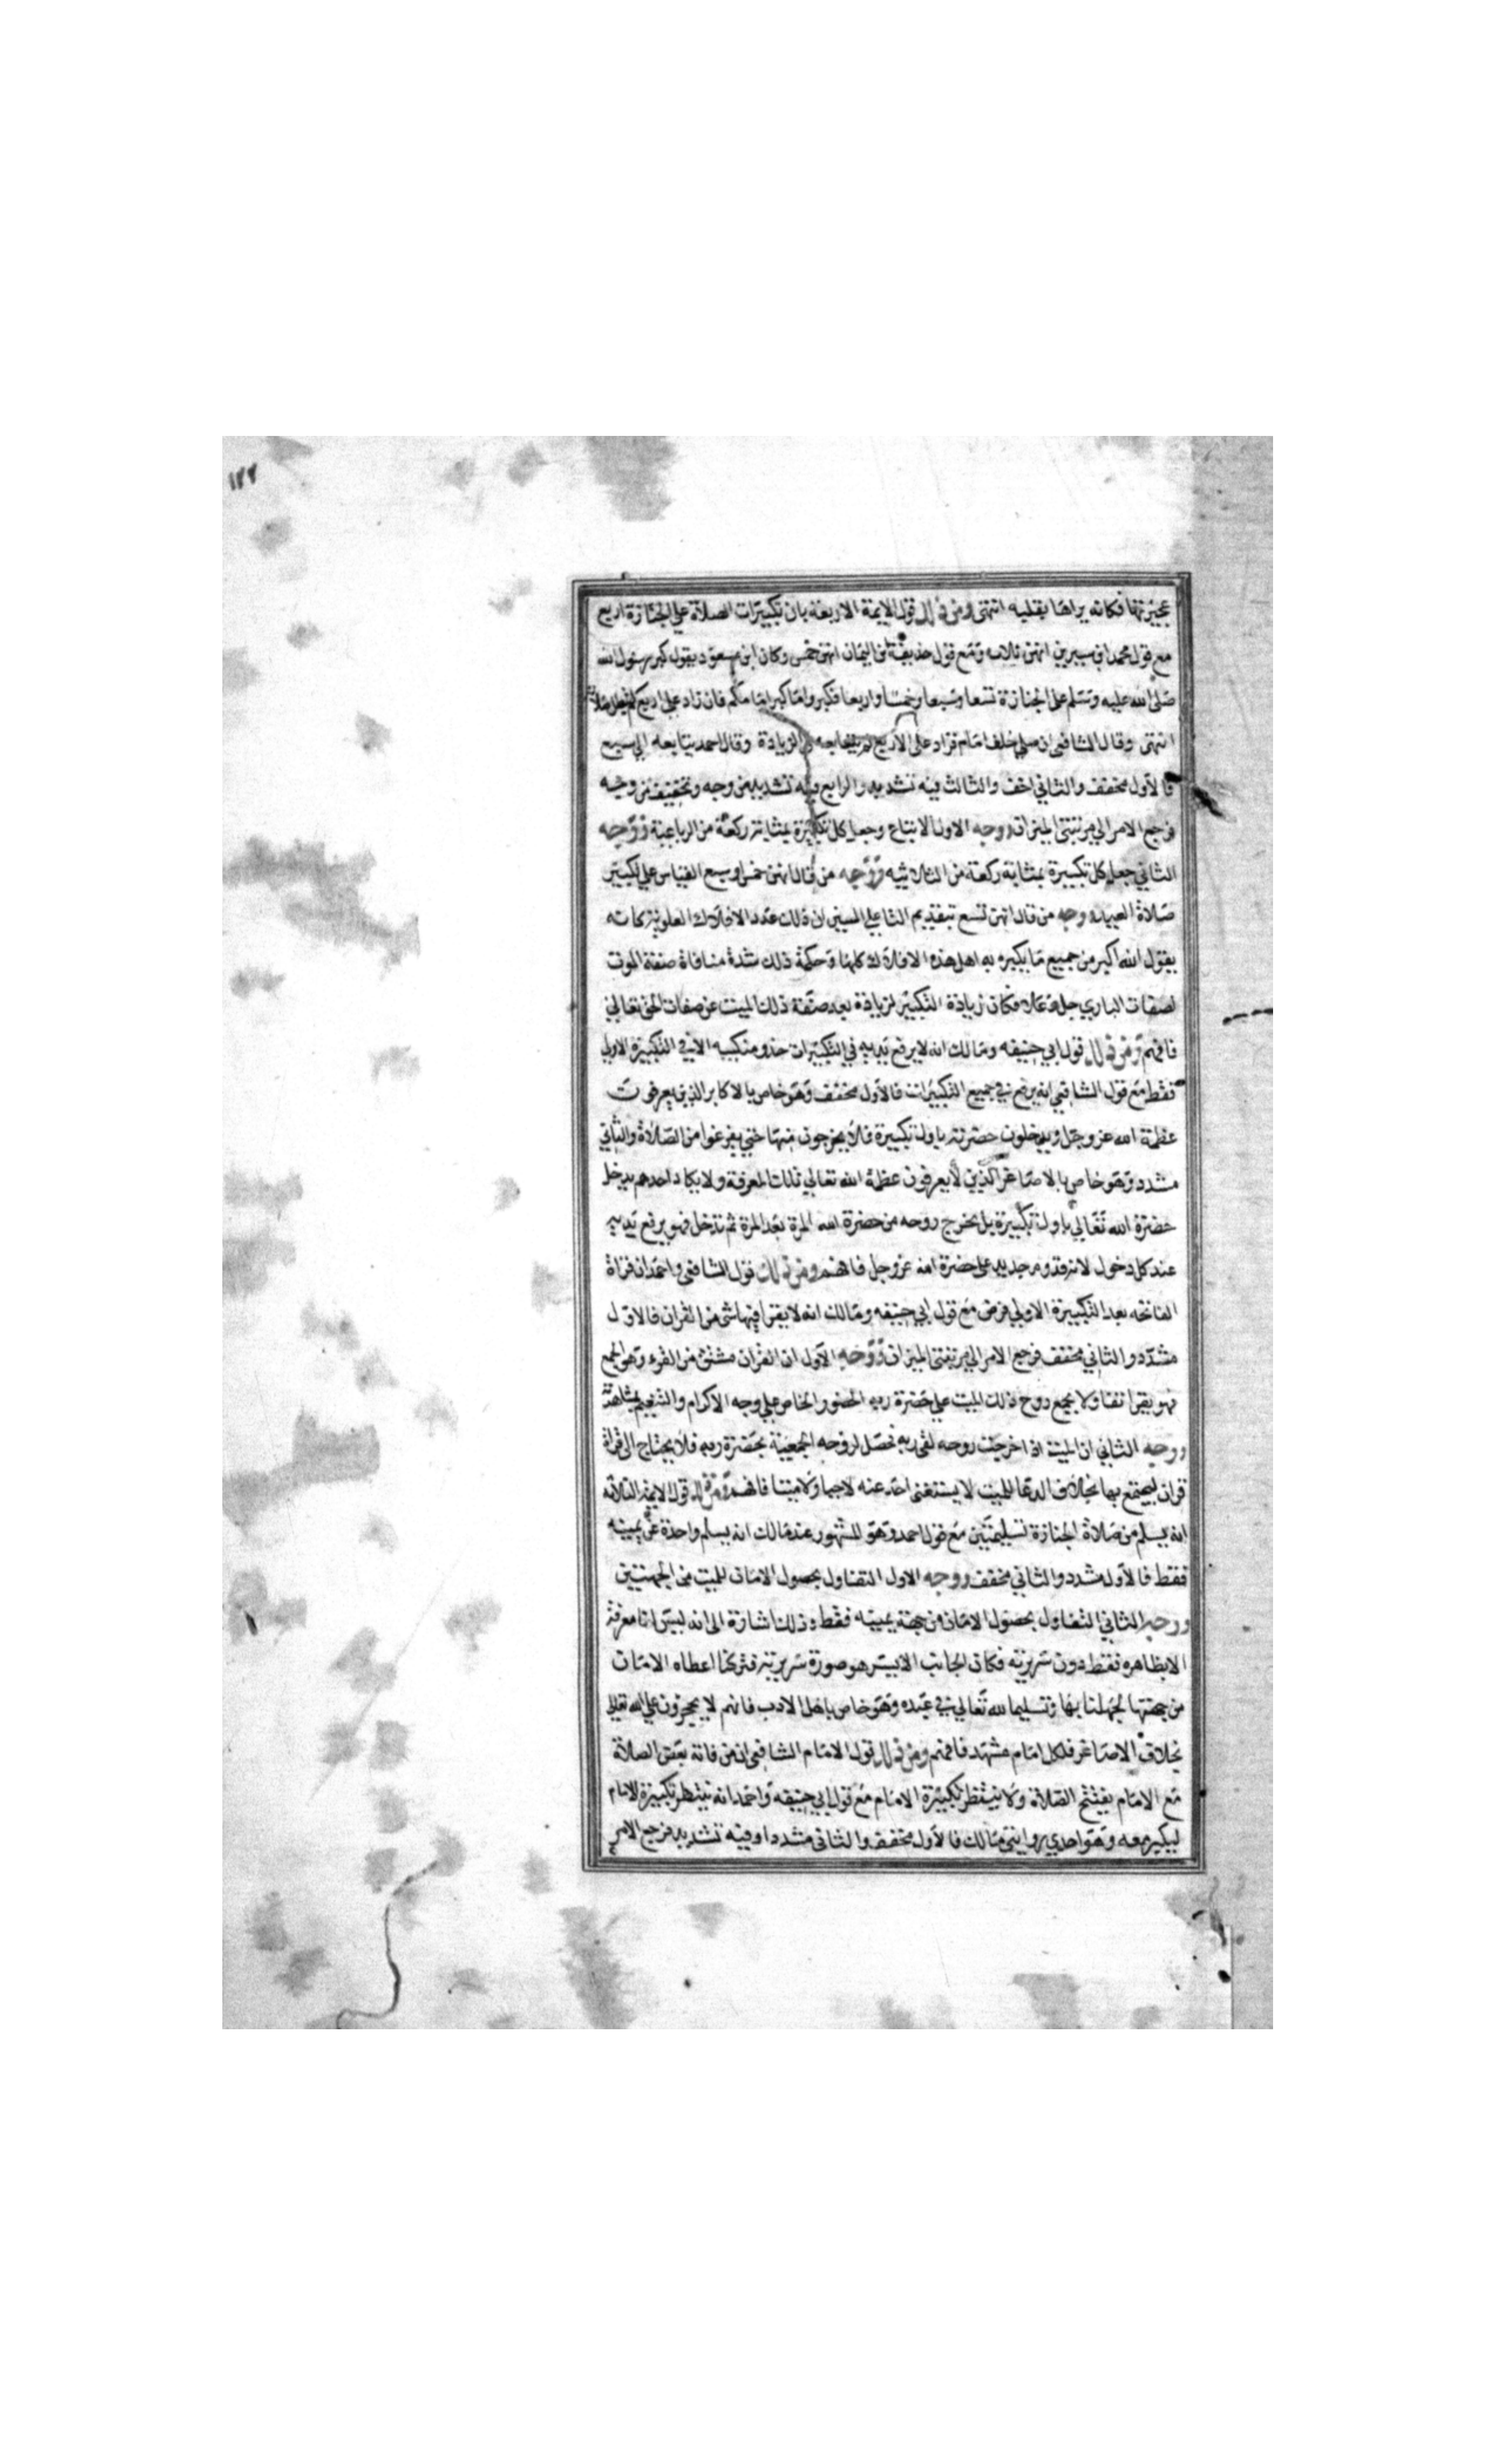 ١٢٢
عجيزتها فكانه يراها بقلبه انتهى ومن ذلك قول الايمة الاربعة بان تكبيرات الصلاة علي الجنازة اربع
مع قول محمد ابن سيرين انهن ثلاث ومع قول حذيفة بن اليمان انهن خمس وكان ابن مسعود يقول كبر رسول الله
صلى الله عليه وسلم على الجنازة تسعا وسبعا وخمسا واربعا فكبروا ما كبر امامكم فان زاد على اربع لم تبطل صلاته
انتهى وقال الشافعي ان صلي خلف امام فزاد على الاربع لم يتابعه في الزيادة وقال احمد يتابعه الي سبع
فالاول مخفف والثاني اخف والثالث فيه تشديد والرابع فيه تشديد من وجه وتخفيف من وجه
فرجع الامر الي مرتبتي الميزان ووجه الاول الاتباع وجعل كل تكبيرة بمثابة ركعة من الرباعية ووجه
الثاني جعل كل تكبيرة بمثابة ركعة من الثلاثية ووجه من قال انهن خمس او سبع القياس علي تكبير
صلاة العيد ووجه من قال انهن تسع بتقديم التا علي السين ان ذلك عدد الافلاك العلوية كانه
يقول الله اكبر من جميع ما يكبره به اهل هذه الافلاك كلها وحكمة ذلك شدة منافاة صفة الموت
لصفات الباري جل وعلا فكان زيادة التكبير لزيادة بعد صفة ذلك الميت عن صفات الحق تعالي
فافهم ومن ذلك قول ابي حنيفه ومالك انه لا يرفع يديه في التكبيرات حذو منكبيه الا في التكبيرة الاولي
فقط مع قول الشافعي انه يرفع في جميع التكبيرات فالاول مخفف وهو خاص بالاكابر الذين يعرفون
عظمة الله عز وجل ويدخلون حضرته باول تكبيرة فلا يخرجون منها حتي يفرغوا من الصلاة والثاني
مشدد وهو خاص بالاصاغر الذين لا يعرفون عظمة الله تعالي تلك المعرفة ولا يكاد احدهم يدخل
حضرة الله تعالي باول تكبيرة بل تخرج روحه من حضرة الله المرة بعد المرة ثم تدخل فهو يرفع يديه
عند كل دخول لانه قدوم جديد على حضرة الله عز وجل فافهم ومن ذلك قول الشافعي واحمد ان قراة
الفاتحه بعد التكبيرة الاولي فرض مع قول ابي حنيفه ومالك انه لا يقرا فيها شي من القران فالاول
مشدد والثاني مخفف فرجع الامر الي مرتبتي الميزان ووجه الاول ان القران مشتق من القرء وهو الجمع
فهو يقرا تفاولا بجمع روح ذلك الميت علي حضرة ربه الحضور الخاص علي وجه الاكرام والتنعيم بمشاهدته
ووجه الثاني ان الميت اذا خرجت روحه لقي ربه فحصل لروحه الجمعية بحضرة ربه فلا يحتاج الى قراة
قران ليجتمع بها بخلاف الدعا للميت لا يستغني احد عنه لا حيا ولا ميتا فافهم ومن ذلك قول الايمة الثلاثه
انه يسلم من صلاة الجنازة تسليمتين مع قول احمد وهو المشهور عند مالك انه يسلم واحدة عن يمينه
فقط فالاول مشدد والثاني مخفف ووجه الاول التفاول بحصول الامان للميت من الجهتين
ووجه الثاني التفاول بحصول الامان من جهة يمينه فقط وذلك اشارة الى انه ليس لنا معرفة
الا بظاهره فقط دون سريرته فكان الجانب الايسر هو صورة سريرته فتركنا اعطاه الامان
من جهتها لجهلنا بها وتسليما لله تعالي في عبده وهو خاص باهل الادب فانهم لا يحجرون علي الله تعالي
بخلاف الاصاغر فلكل امام مشهد فافهم ومن ذلك قول الامام الشافعي ان من فاته بعض الصلاة
مع الامام يفتتح الصلاة ولا ينتظر تكبيرة الامام مع قول ابي حنيفه واحمد انه ينتظر تكبيرة الامام
ليكبر معه وهو احدي روايتي مالك فالاول مخفف والثاني مشدد او فيه تشديد فرجع الامر